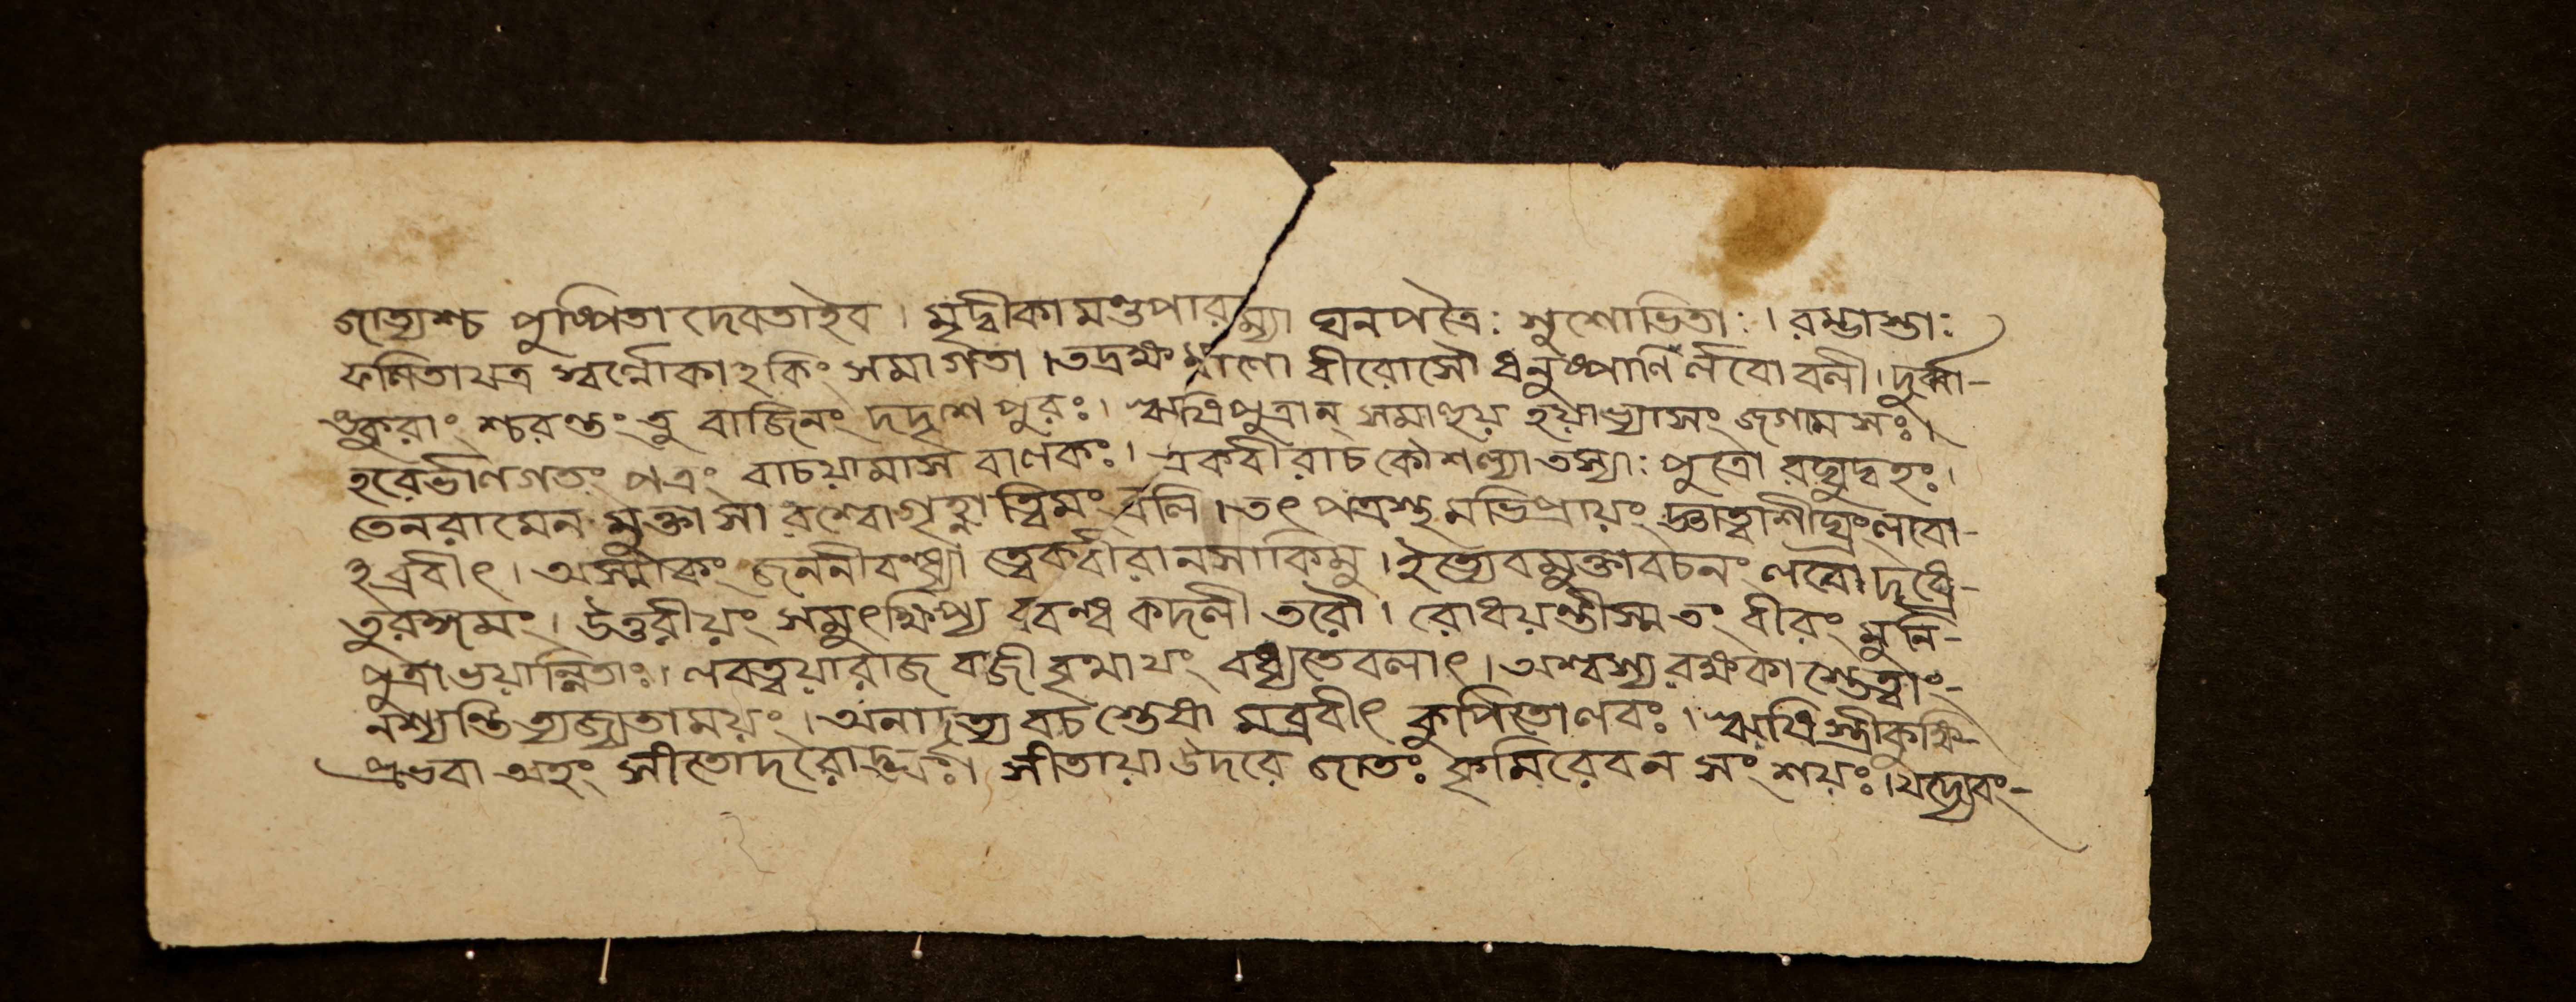 জাত্যশ্চ পুষ্পিতা দেবতাইব । মৃদ্বীকা মণ্ডপারম্যা ঘনপত্রৈঃ সুশোভিতাঃ । রম্ভাস্তাঃ
ফলিতাযত্র স্বর্ন্নোকাহকিং সমাগতা । তদ্রক্ষমাণো বীরোসৌ ধনুষ্পাণির্লবো বলী । দুর্ব্বা-
ঙ্কুরাং শ্চরন্তং তু বাজিনং দদৃশে পুরঃ । ঋষিপুত্রান্ সমাহুয় হয়াভ্যাসং জগামসঃ ।
হরের্ভালগতং পত্রং বাচয়ামাস বালকঃ । একবীরাচ কৌশল্যা তস্যাঃ পুত্রো রঘুদ্বহঃ ।
তেনরামেন মুক্তাসা রশ্বোগৃহ্লাত্বিমং বলি । তৎ পত্রস্থমভিপ্রায়ং জ্ঞাত্বাশীঘ্রংলবো-
হব্রবীৎ । অস্মাকং জননীবন্ধ্যা ত্বেকবীরানসাকিমু । ইত্যেবমুক্তাবচনং লবোদধ্রে-
তুরঙ্গমং । উত্তরীয়ং সমুৎক্ষিপ্য ববন্ধ কদলী তরৌ । রোধয়ন্তীস্ম তং বীরং মুনি-
পুত্রাভয়ান্বিতাঃ । লবত্বয়ারাজ বাজী বৃথাযং বধ্যতেবলাৎ । অশ্বস্য রক্ষকা শ্চেত্বাং-
নশ্যন্তি ত্যজ্যতাময়ং । অনাদৃত্য বচ স্তেষা মব্রবীৎ কুপিতোলবঃ । ঋষি স্ত্রীকুক্ষি-
প্রভবা অহং সীতোদরোদ্ভবঃ । সীতায়া উদরে জাতঃ কৃমিরেবন সং শয়ঃ । যদ্যেবং-